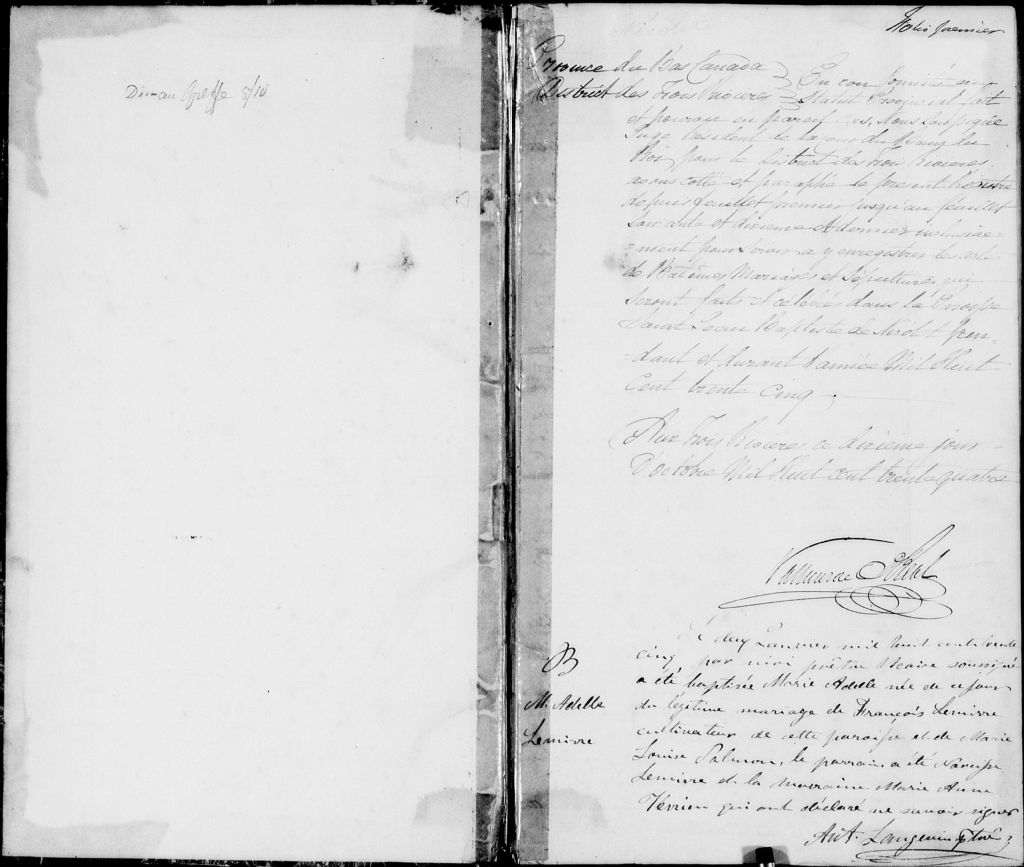 5/10
Nicolet
Folio premier
Province du Bas Canada
District des Trois Rivières
En conformité au
Statut Provincial fait
et pourvu en pareil cas, Nous Soussigné
Juge Resident de la Cour du Banc du
Roi, pour le District des Trois Rivieres
avons cotté et paraphé le present Registre
depuis feuillet premier jusqu'au feuillet
Soixante et dixieme et dernier
-ment pour Servir a y enregistrer les actes
de Batêmes Mariages et Sépultures qui
seront faits et celebrés dans la Paroisse
Saint Jean Baptiste de Nicolet pen-
-dant et durant l'année Mil Huit
Cent trente Cinq.
Aux Trois Rivieres, ce dixieme jour
D'octobre Mil Huit cent trente quatre
B
M. Adelle
Lemirre
Le deux Janvier mil huit cent trente
cinq, par moi prêtre Vicaire soussigné
a été baptisée Marie Adelle née de ce jour
du légitime mariage de François Lemirre
cultivateur de cette paroisse et de Marie
Louise Salmon, le parrain a été Narcisse
Lemirre et la marraine Marie Anne
Février qui ont déclaré ne savoir signer
Ant. Langevin Ptre